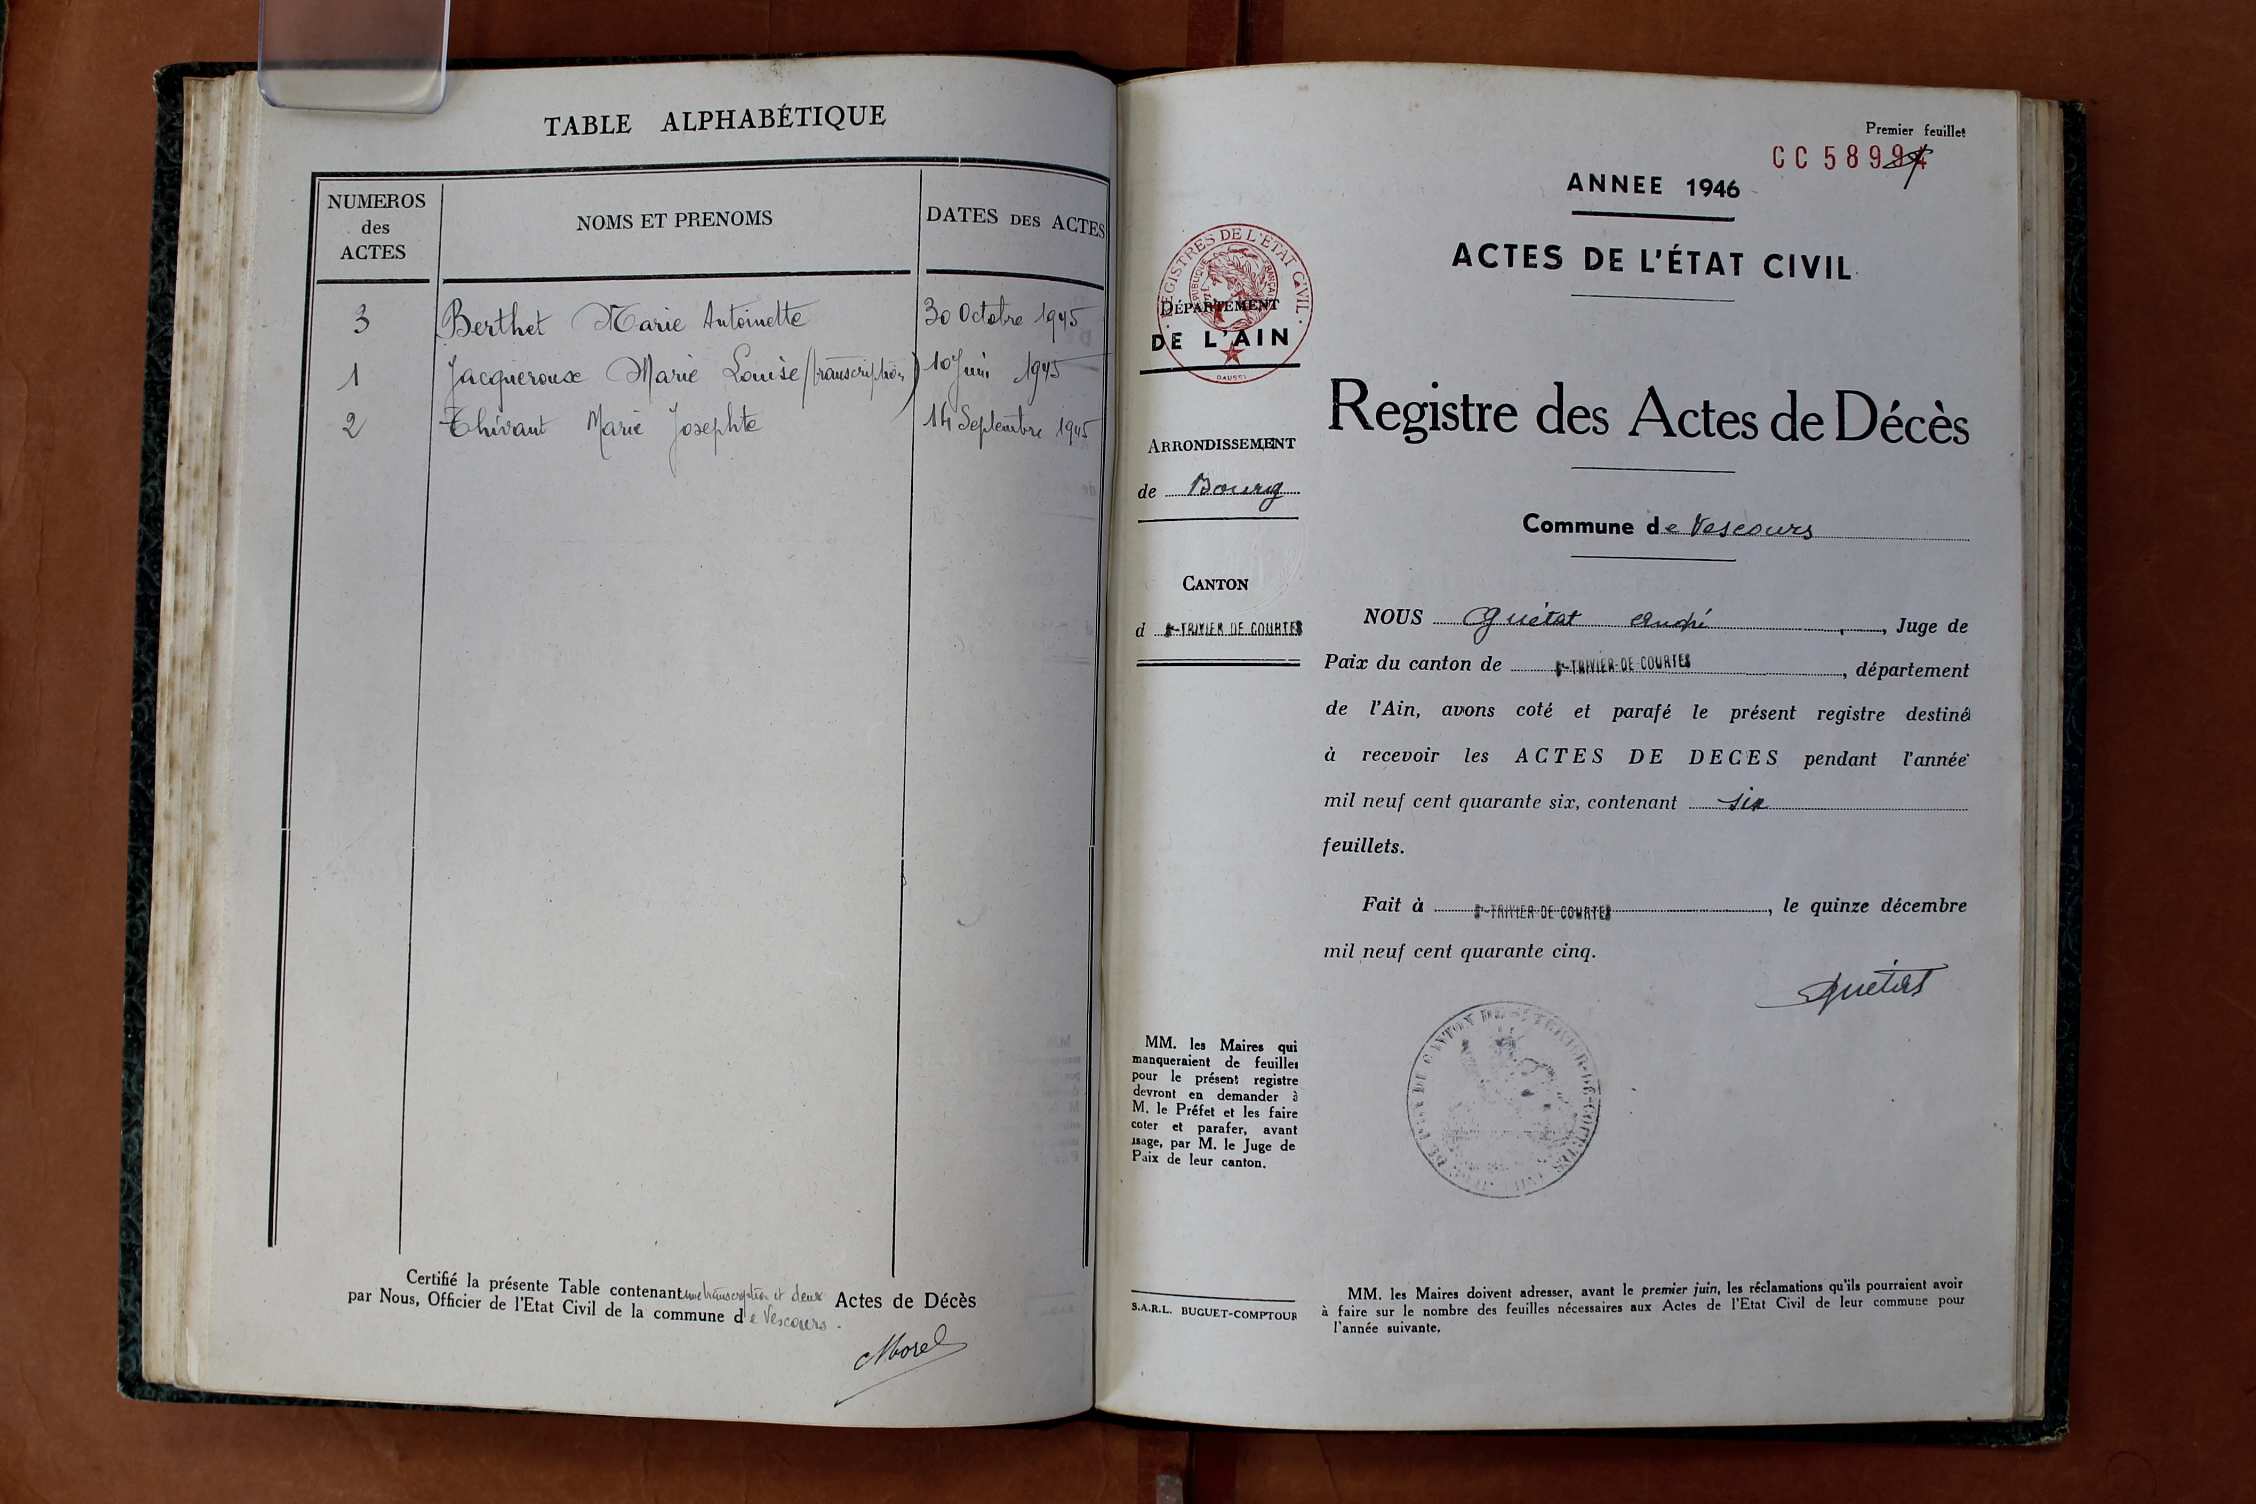 TABLE ALPHABÉTIQUE
NUMEROS
des
ACTES
NOMS ET PRENOMS
DATES DES ACTES
3 Berthet Marie Antoinette 30 Octobre 1945
1 Jacqueroux Marie Louise (transcription) 10 Juin 1945
2 Thivant Marie Josephte 14 Septembre 1945
Certifié la présente Table contenant une transcription et deux Actes de Décès
par Nous, Officier de l'Etat Civil de la commune de Vescours.
Morel
Premier feuillet
CC 589
ANNEE 1946
ACTES DE L'ÉTAT CIVIL
REGISTRES DE L'ETAT CIVIL
REPUBLIQUE FRANÇAISE
DAUSSY
DÉPARTEMENT
DE L'AIN
ARRONDISSEMENT
de Bourg
CANTON
d St-TRIVIER DE COURTES
Registre des Actes de Décès
Commune de Vescours
NOUS Quétat André, Juge de
Paix du canton de St-TRIVIER-DE-COURTES, département
de l'Ain, avons coté et parafé le présent registre destiné
à recevoir les ACTES DE DECES pendant l'année
mil neuf cent quarante six, contenant six
feuillets.
Fait à St-TRIVIER DE COURTES, le quinze décembre
mil neuf cent quarante cinq.
Quétat
MM. les Maires qui
manqueraient de feuilles
pour le présent registre
devront en demander à
M. le Préfet et les faire
coter et parafer, avant
usage, par M. le Juge de
Paix de leur canton.
S.A.R.L. BUGUET-COMPTOUR
MM. les Maires doivent adresser, avant le premier juin, les réclamations qu'ils pourraient avoir
à faire sur le nombre des feuilles nécessaires aux Actes de l'Etat Civil de leur commune pour
l'année suivante.